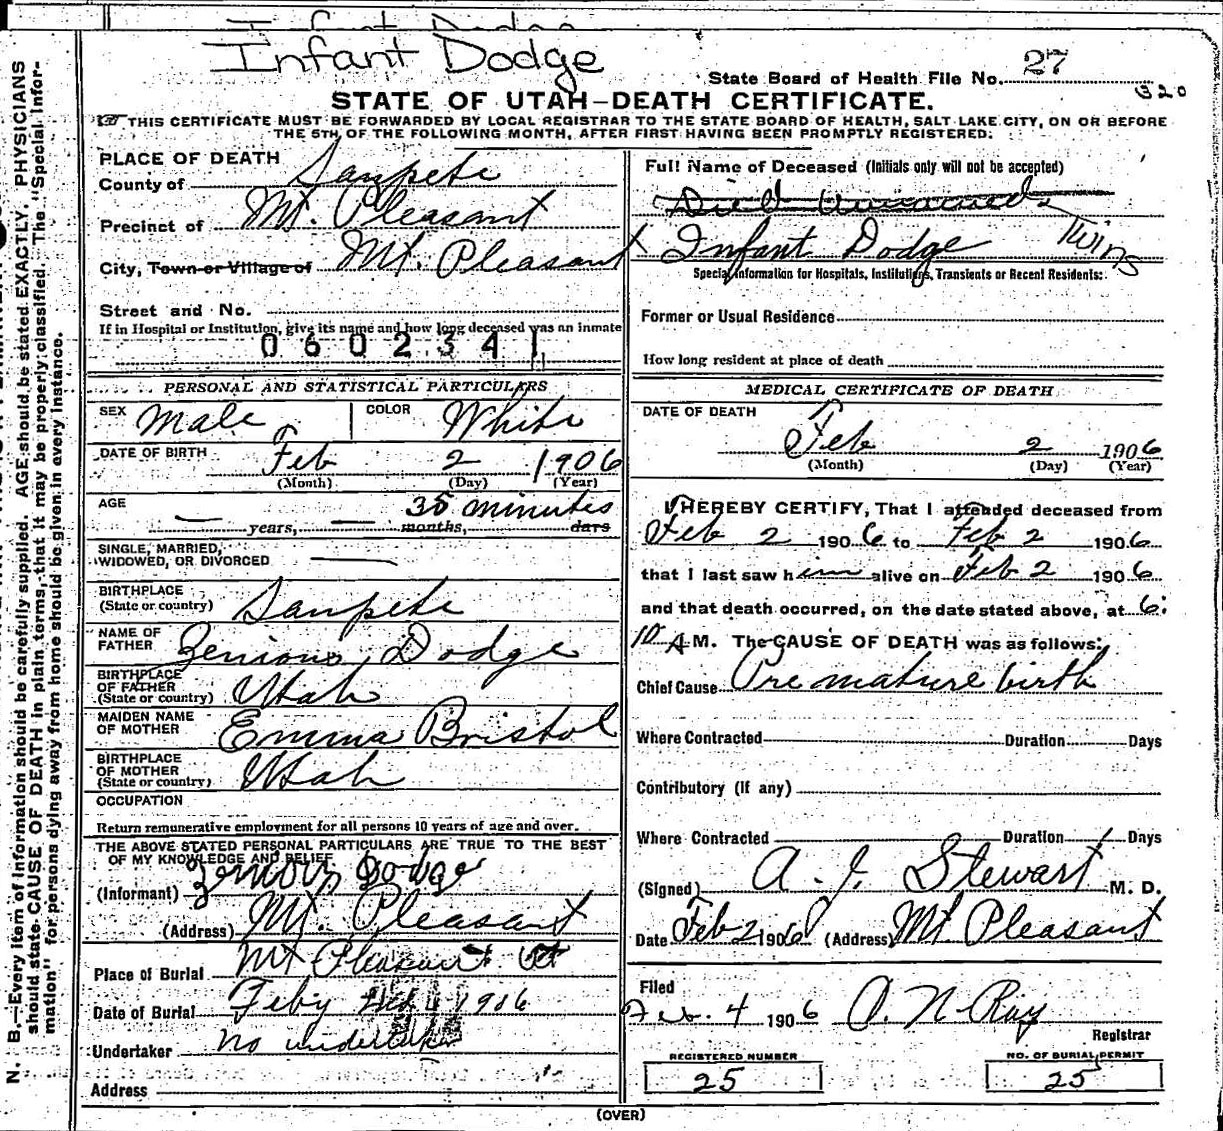 Infant Dodge
State Board of Health File No. 27
320
STATE OF UTAH—DEATH CERTIFICATE.
THIS CERTIFICATE MUST BE FORWARDED BY LOCAL REGISTRAR TO THE STATE BOARD OF HEALTH, SALT LAKE CITY, ON OR BEFORE
THE 5TH OF THE FOLLOWING MONTH, AFTER FIRST HAVING BEEN PROMPTLY REGISTERED:
PLACE OF DEATH
County of Sanpete
Precinct of Mt. Pleasant
City, Town or Village of Mt. Pleasant
Street and No.
If in Hospital or Institution, give its name and how long deceased was an inmate
0602341
PERSONAL AND STATISTICAL PARTICULARS
SEX Male COLOR White
DATE OF BIRTH Feb 2 1906
(Month) (Day) (Year)
AGE 35 minutes
— years, — months, days
SINGLE, MARRIED,
WIDOWED, OR DIVORCED —
BIRTHPLACE
(State or country) Sanpete
NAME OF
FATHER Dodge
BIRTHPLACE
OF FATHER
(State or country) Utah
MAIDEN NAME
OF MOTHER Emma Bristol
BIRTHPLACE
OF MOTHER
(State or country) Utah
OCCUPATION
Return remunerative employment for all persons 10 years of age and over.
THE ABOVE STATED PERSONAL PARTICULARS ARE TRUE TO THE BEST
OF MY KNOWLEDGE AND BELIEF
(Informant) Dodge
(Address) Mt. Pleasant
Place of Burial Mt Pleasant Ut
Date of Burial Feby 1906
Undertaker No undertaker
Address
Full Name of Deceased (Initials only will not be accepted)
Died Unnamed
Infant Dodge Twins
Special Information for Hospitals, Institutions, Transients or Recent Residents:
Former or Usual Residence
How long resident at place of death
MEDICAL CERTIFICATE OF DEATH
DATE OF DEATH
Feb 2 1906
(Month) (Day) (Year)
I HEREBY CERTIFY, That I attended deceased from
Feb 2 1906 to Feb 2 1906
that I last saw him alive on Feb 2 1906
and that death occurred, on the date stated above, at 6:
10 A M. The CAUSE OF DEATH was as follows:
Chief Cause Premature birth
Where Contracted Duration Days
Contributory (if any)
Where Contracted Duration Days
(Signed) A. J. Stewart M. D.
Date Feb 2 1906 (Address) Mt Pleasant
Filed
Feb. 4 1906 A. N Ray
Registrar
REGISTERED NUMBER
25
NO. OF BURIAL PERMIT
25
(OVER)
N. B.—Every item of information should be carefully supplied. AGE should be stated EXACTLY. PHYSICIANS
should state CAUSE OF DEATH in plain terms, that it may be properly classified. The "Special Infor-
mation" for persons dying away from home should be given in every instance.